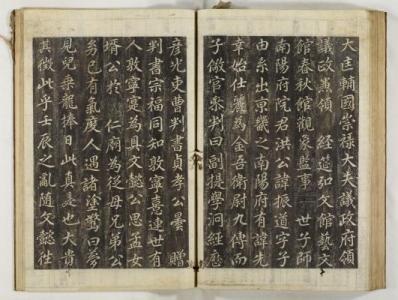 大匡輔國崇祿大夫議政府領
議政兼領 經筵弘文館藝文
館春秋館觀象監事 世子師
南陽府院君洪公諱振道字子
由系出京畿之南陽府有諱先
幸始仕麗為金吾衛尉九傳而
子儆官參判曰副提學泂經歷
彦光吏曹判書貞孝公曇 贈
判書宗福同知敦寧憙連世有
人敦寧寔為具文懿公思孟女
壻公於 仁廟為從母兄弟公
㓜已有氣度人遇諸塗驚曰夢
見兒乘龍捧日此真是也大貴
其徵此乎壬辰之亂隨文懿往